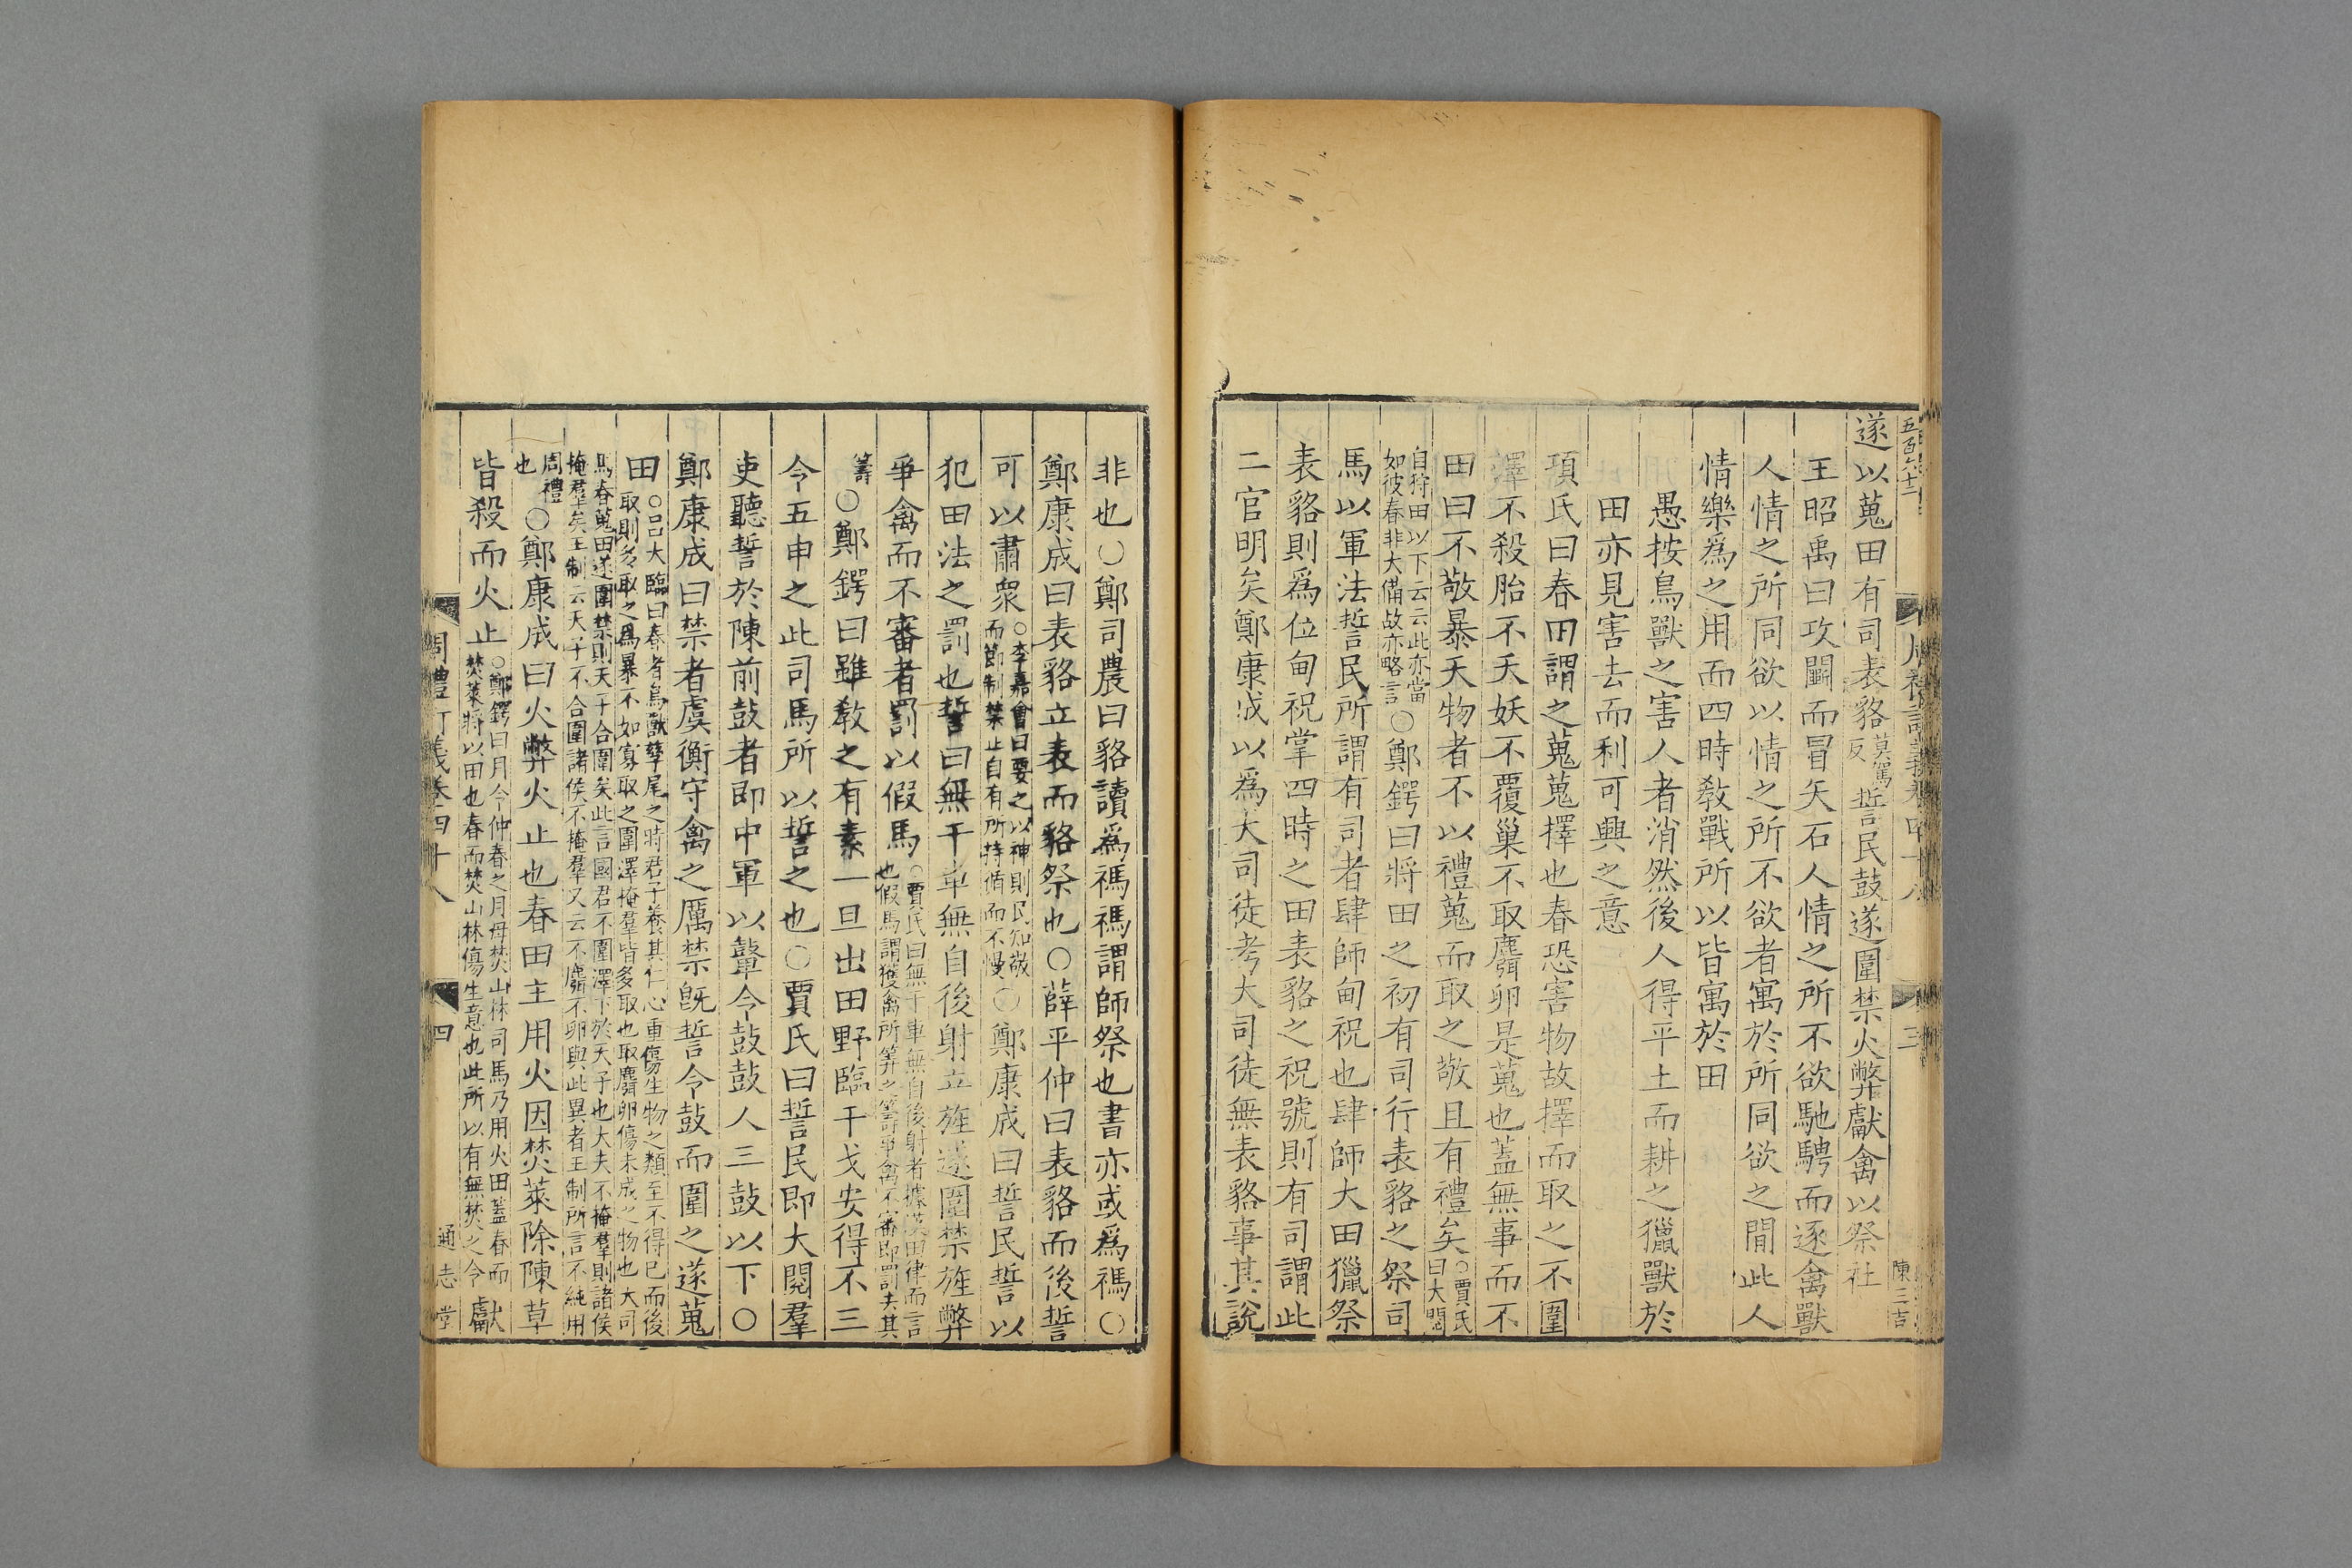 五百六十二
周禮訂義卷四十八
三
陳三吉
遂以蒐田有司表貉莫駕反誓民鼓遂圍禁火弊獻禽以祭社
王昭禹曰攻鬭而冒矢石人情之所不欲馳騁而逐禽獸
人情之所同欲以情之所不欲者寓於所同欲之閒此人
情樂為之用而四時敎戰所以皆寓於田
愚按鳥獸之害人者消然後人得平土而耕之獵獸於
田亦見害去而利可興之意
項氏曰春田謂之蒐蒐擇也春恐害物故擇而取之不圍
澤不殺胎不夭妖不覆巢不取麛卵是蒐也蓋無事而不
田曰不敬暴天物者不以禮蒐而取之敬且有禮矣○賈氏曰大閱
自狩田以下云云此亦當如彼春非大備故亦略言○鄭鍔曰將田之初有司行表貉之祭司
馬以軍法誓民所謂有司者肆師甸祝也肆師大田獵祭
表貉則為位甸祝掌四時之田表貉之祝號則有司謂此
二官明矣鄭康成以為大司徒考大司徒無表貉事其說
非也○鄭司農曰貉讀為禡禡謂師祭也書亦或為禡○
鄭康成曰表貉立表而貉祭也○薛平仲曰表貉而後誓
可以肅衆○李嘉會曰要之以神則民知敬而節制禁止自有所持循而不慢○鄭康成曰誓民誓以
犯田法之罰也誓曰無干車無自後射立旌遂圍禁旌弊
爭禽而不審者罰以假馬○賈氏曰無干車無自後射者據漢田律而言也假馬謂獲禽所筭之籌爭禽不審即罰去其
籌○鄭鍔曰雖敎之有素一旦出田野臨干戈安得不三
令五申之此司馬所以誓之也○賈氏曰誓民即大閱羣
吏聽誓於陳前鼓者即中軍以鼙令鼓鼓人三鼓以下○
鄭康成曰禁者虞衡守禽之厲禁旣誓令鼓而圍之遂蒐
田○呂大臨曰春者鳥獸孳尾之時君子養其仁心重傷生物之類至不得已而後取則多取之為暴不如寡取之圍澤掩羣皆多取也取麛卵傷未成之物也大司
馬春蒐田遂圍禁則天子合圍矣此言國君不圍澤下於天子也大夫不掩羣則諸侯掩羣矣王制云天子不合圍諸侯不掩羣又云不麛不卵與此異者王制所言不純用
周禮也○鄭康成曰火弊火止也春田主用火因焚萊除陳草
皆殺而火止○鄭鍔曰月令仲春之月毋焚山林司馬乃用火田蓋春而焚萊將以田也春而焚山林傷生意也此所以有無焚之令獻
周禮訂義卷四十八
四
通志堂